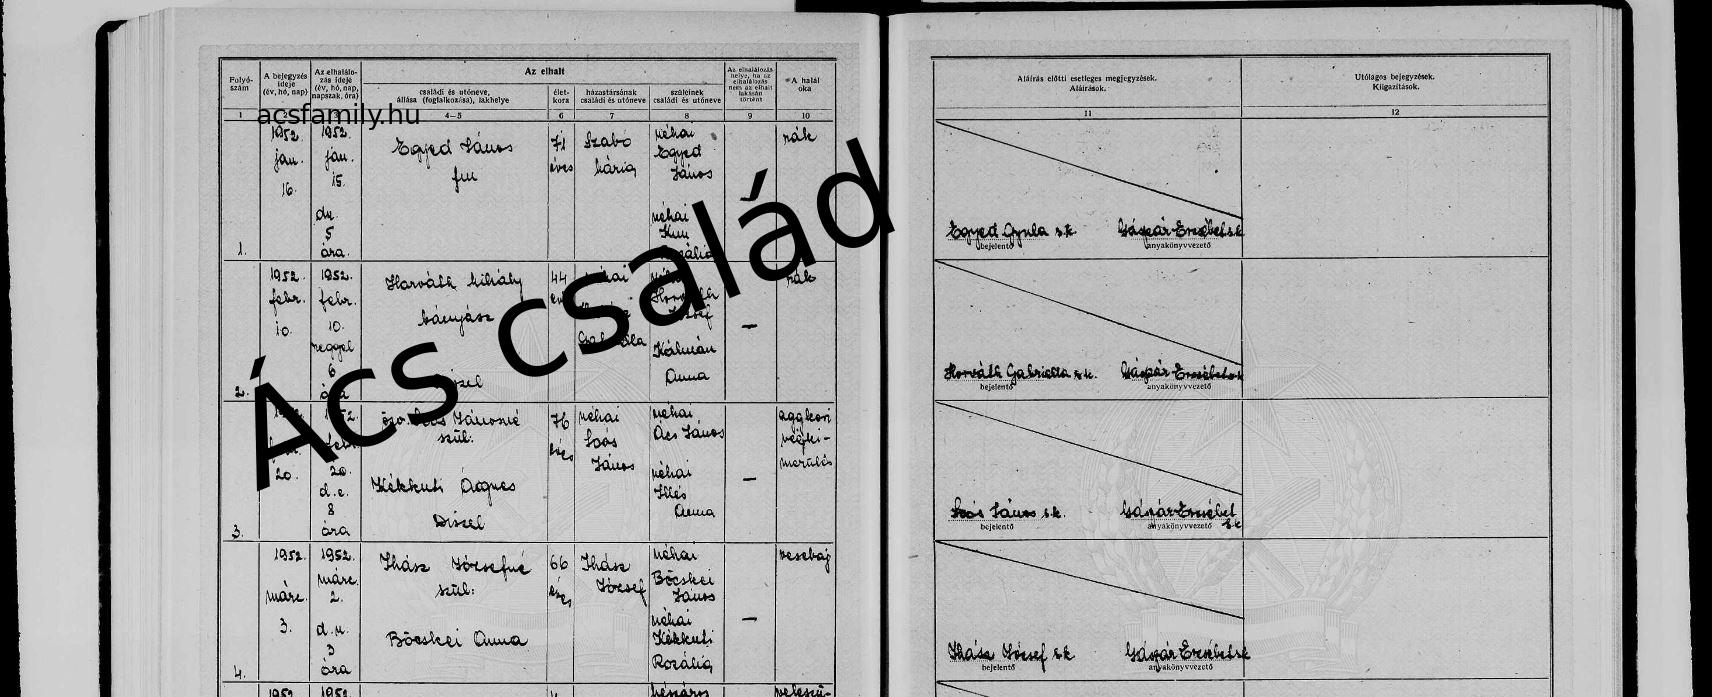 Folyó-
szám
A bejegyzés
ideje
(év, hó, nap)
Az elhalálo-
zás ideje
(év, hó, nap,
napszak, óra)
Az elhalt
családi és utóneve,
állása (foglalkozása), lakhelye
élet-
kora
házastársának
családi és utóneve
szüleinek
családi és utóneve
Az elhalálozás
helye, ha az
elhalálozás
nem az elhalt
lakásán
történt
A halál
oka
1
4–5
6
7
8
9
10
acsfamily.hu
Ács család
1.
1952.
jan.
16.
1952.
jan.
15.
du.
5
óra.
Egyed János
71
éves
Szabó
Mária
néhai
Egyed
János
néhai
Kun
rák
2.
1952.
febr.
10.
1952.
febr.
10.
reggel
6
Horváth Mihály
bányász
44
Kálmán
Anna
—
rák
3.
20.
20.
d.e.
8
óra
Jánosné
szül:
Kékkuti Ágnes
Diszel
76
éves
néhai
Soós
János
néhai
Ács János
néhai
Illés
Anna
—
aggkori
végki-
merülés
4.
1952.
márc.
3.
1952.
márc.
2.
d.u.
3
óra
Ihász Józsefné
szül:
Böcskei Anna
66
éves
Ihász
József
néhai
Böcskei
János
néhai
Kékkuti
Rozália
—
vesebaj
1952
1952.
Aláírás előtti esetleges megjegyzések.
Aláírások.
Utólagos bejegyzések.
Kiigazítások.
11
12
Egyed Gyula s.k. Gáspár Erzsébet s.k.
bejelentő anyakönyvvezető
Horváth Gabriella s.k. Gáspár Erzsébet s.k.
bejelentő anyakönyvvezető
Soós János s.k. Gáspár Erzsébet
s.k.
bejelentő anyakönyvvezető
Ihász József s.k. Gáspár Erzsébet s.k.
bejelentő anyakönyvvezető